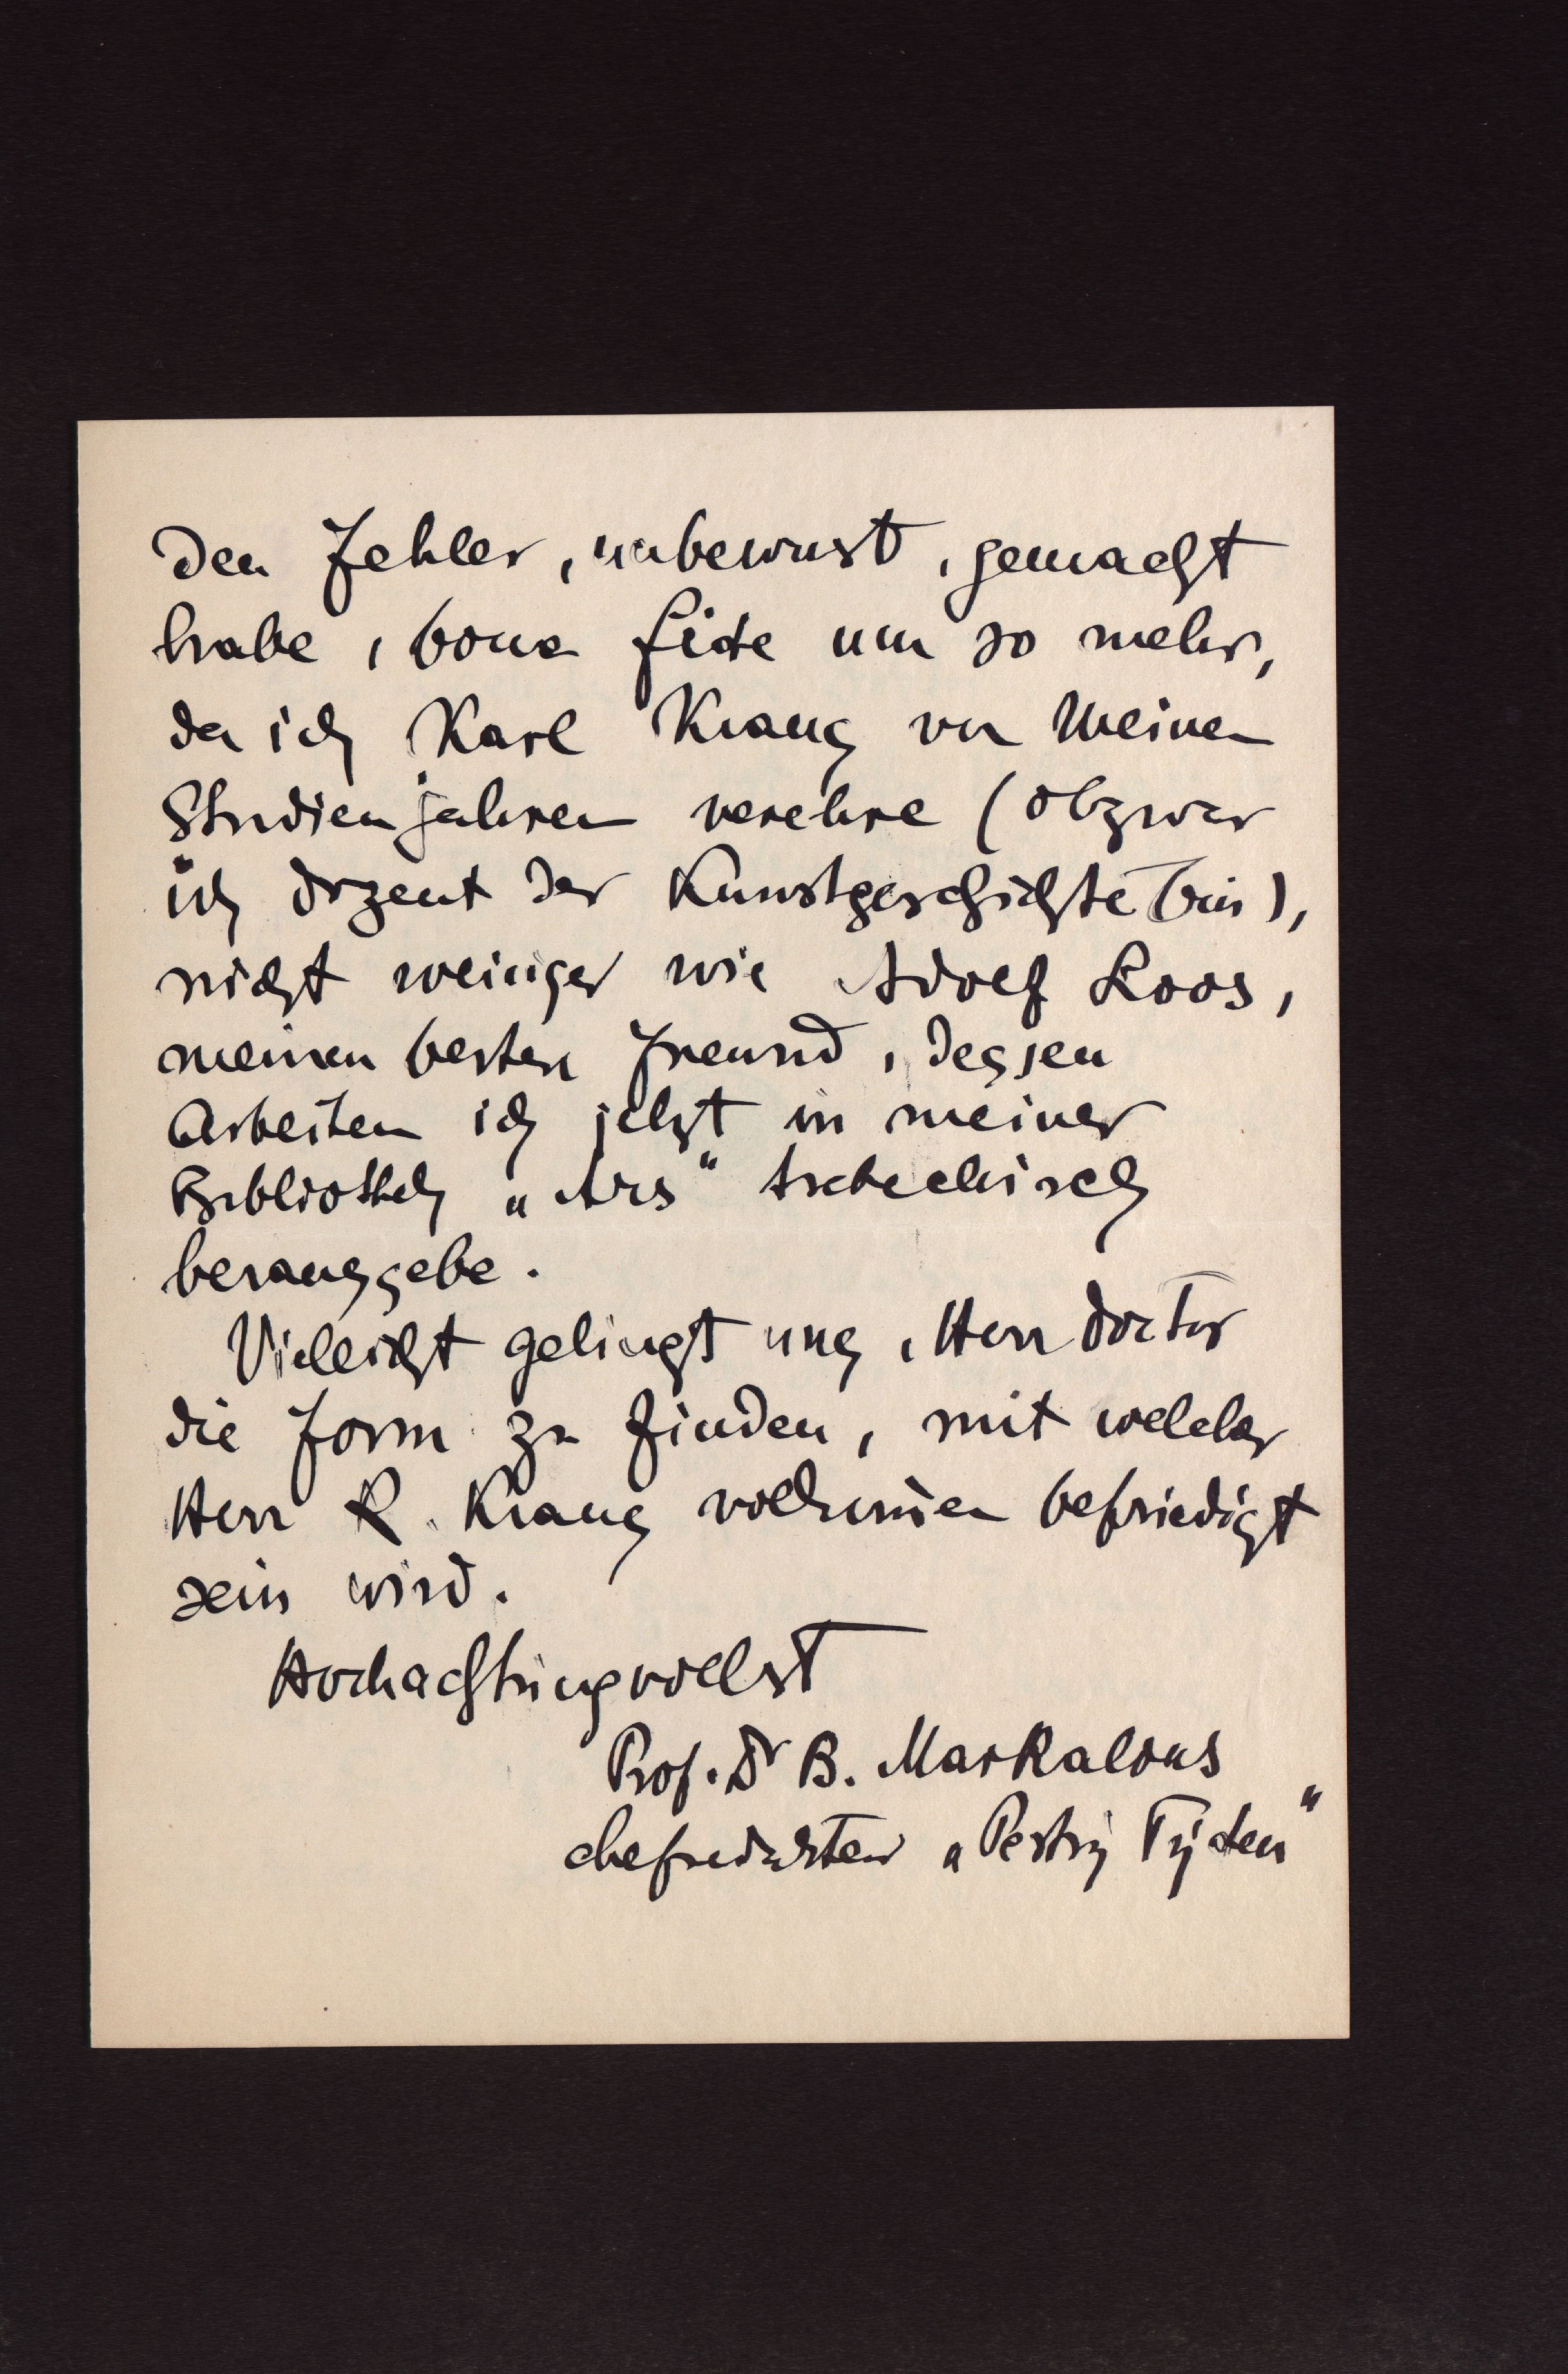 den Fehler, unbewust, gemacht
habe, bona fide um so mehr,
da ich Karl Kraus von meinen
Studienjahren verehre (obzwar
ich dozent der Kunstgeschichte bin),
nicht weiniger wie Adolf Loos,
meinen besten Freund, dessen
Arbeiten ich jetzt in meiner
Bibliothek „Ars“ tschechisch
herausgebe.
Vielleicht gelingt uns, Herr doctor
die Form zu finden, mit welcher
Herr K. Kraus vollkommen befriedigt
sein wird.
Hochachtungvollst
Prof. Dr B. Markalous
chefredakteur „Pestrý Týden“